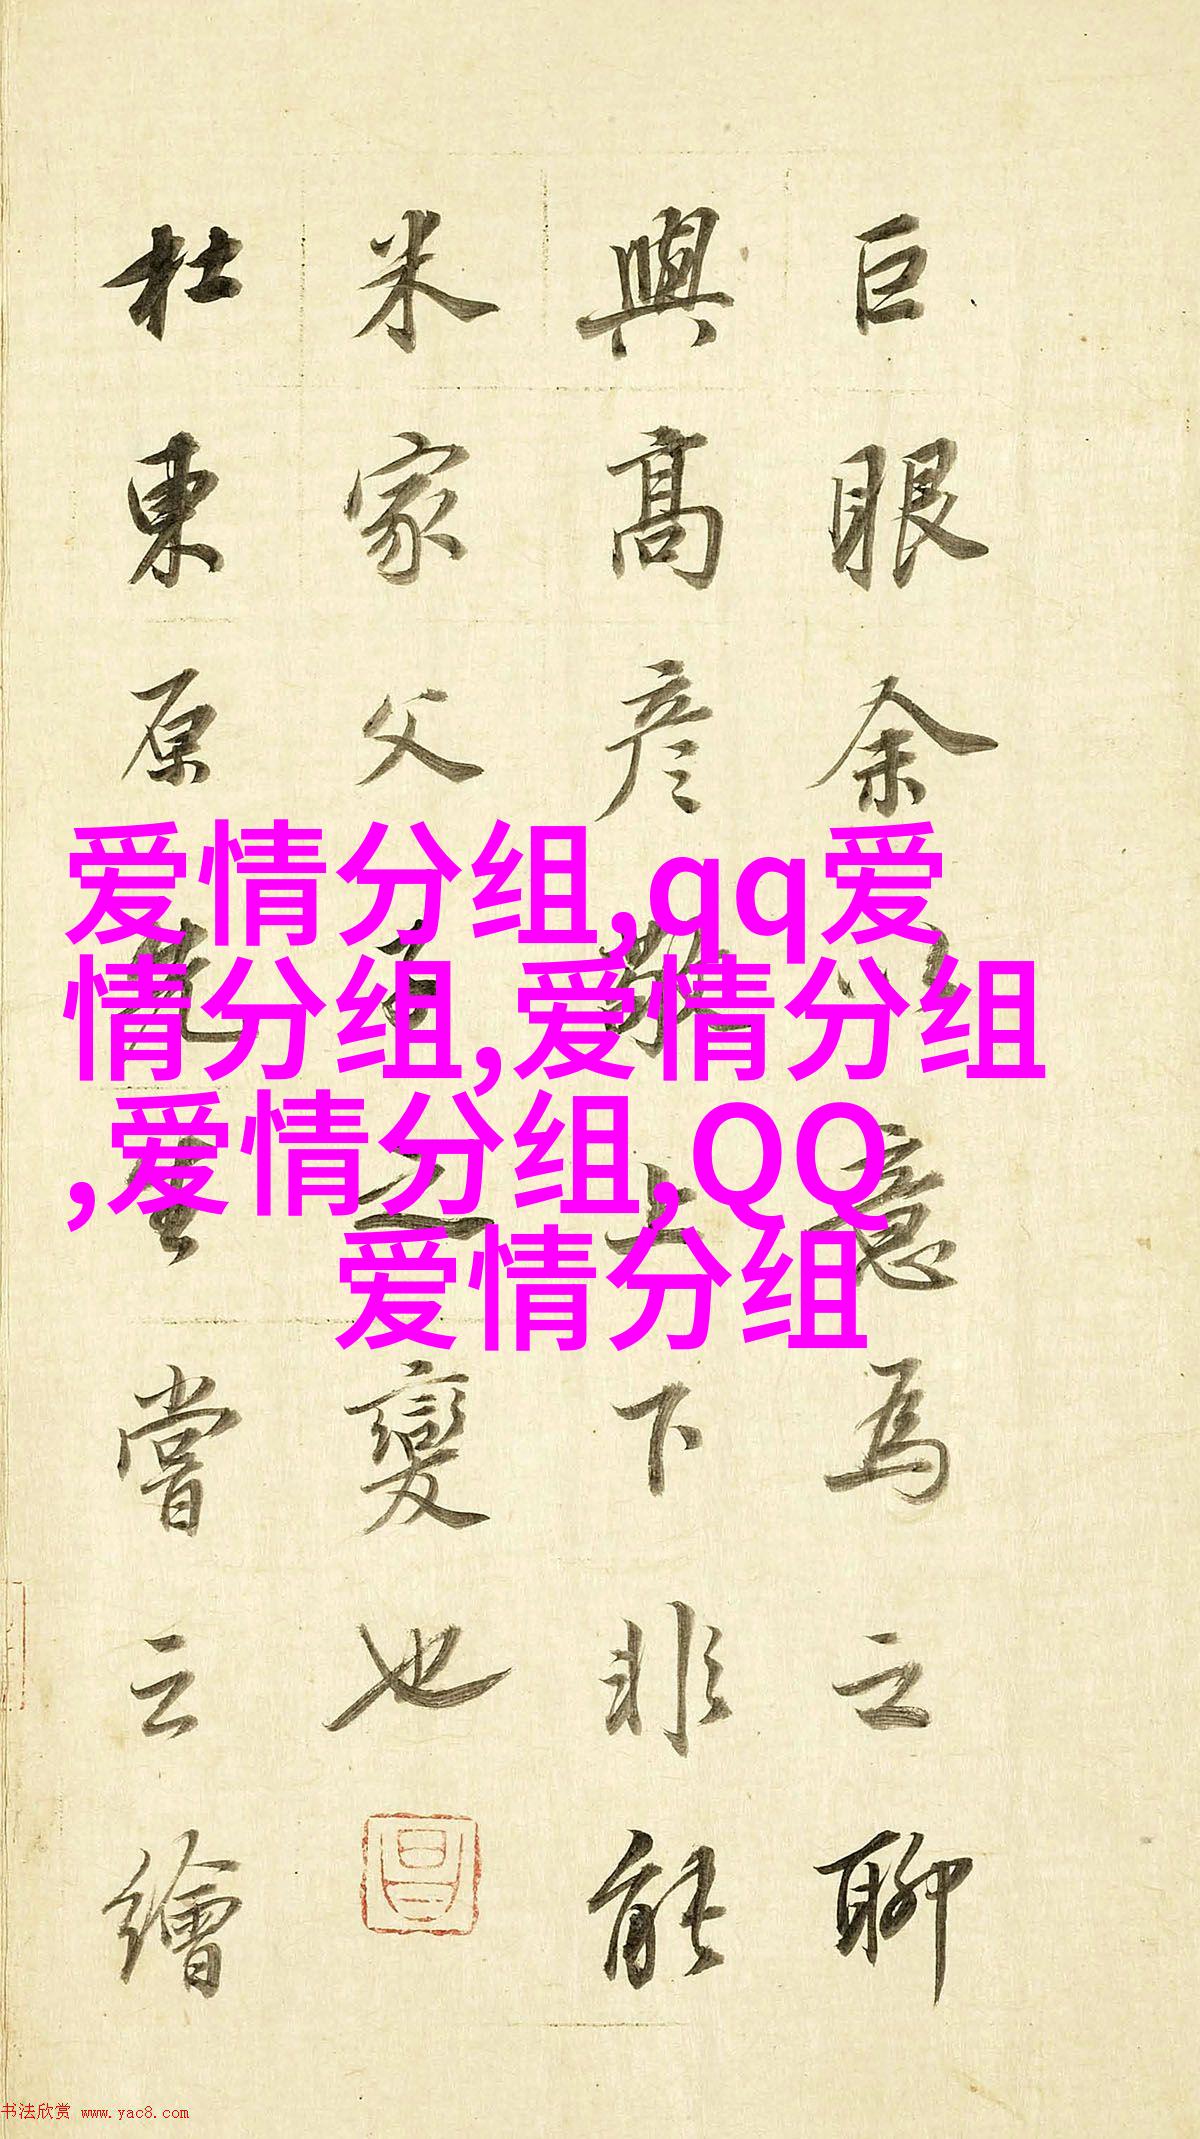 巨眼余意為之聊
與高彦敬上下非能
米家父子之變也
杜東原先生嘗云繪
爱情分组,qq爱
情分组,爱情分组
,爱情分组,QQ
爱情分组
书法欣赏 www.yac8.com